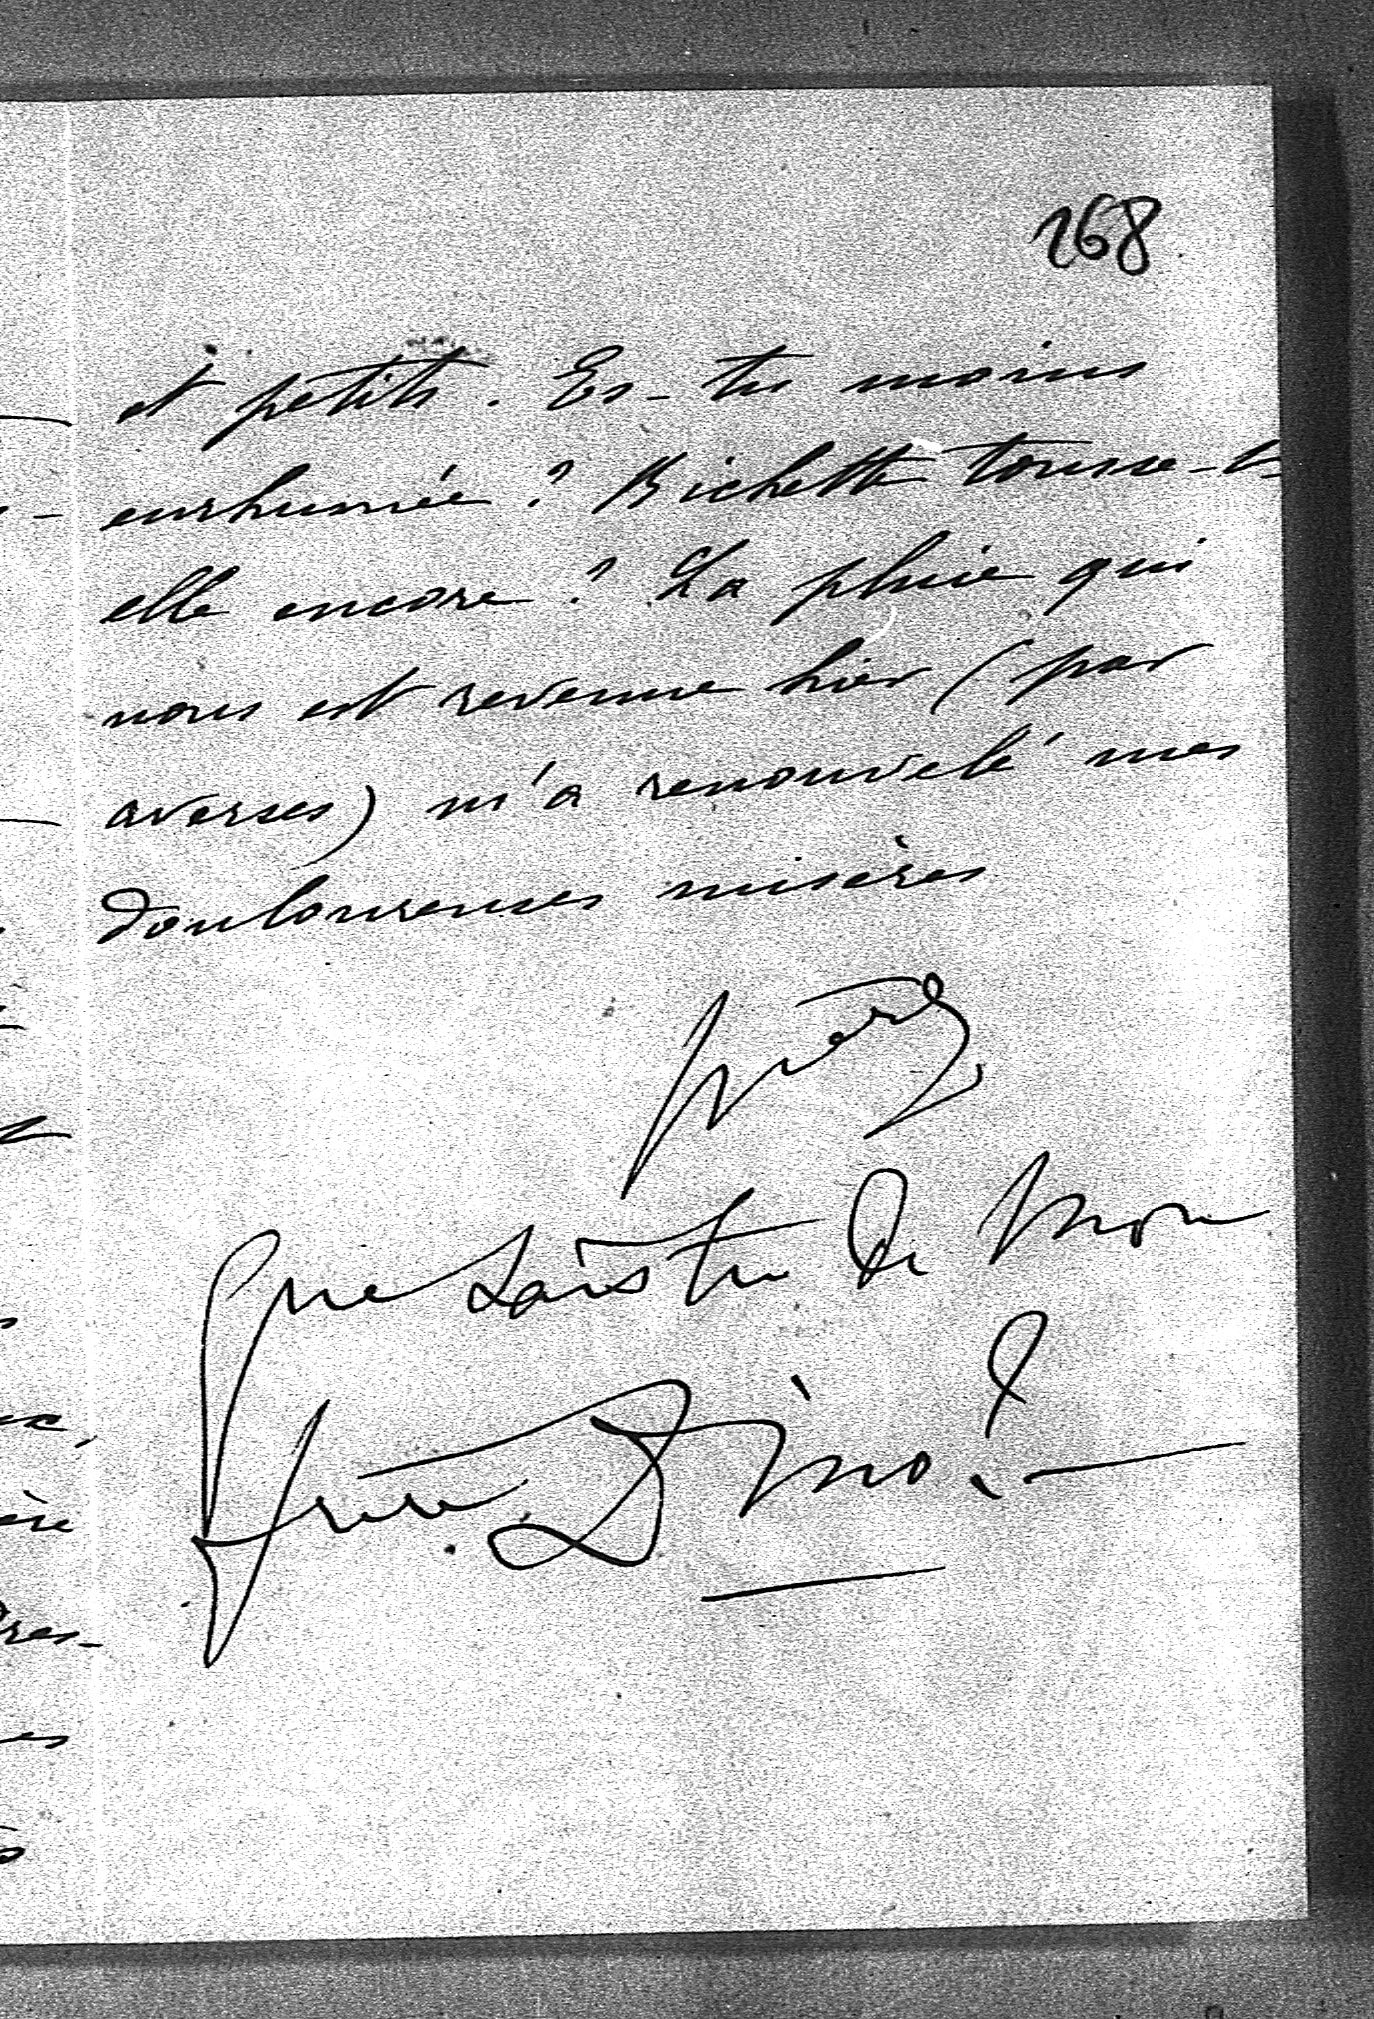 168
et petits. Es-tu moins
enrhumée ? Bichette tousse-t-
elle encore ? La pluie qui
nous est revenue hier (par
averses) m'a renouvelé mes
douloureuses misères
Que sais tu de mon
frère Dino ?